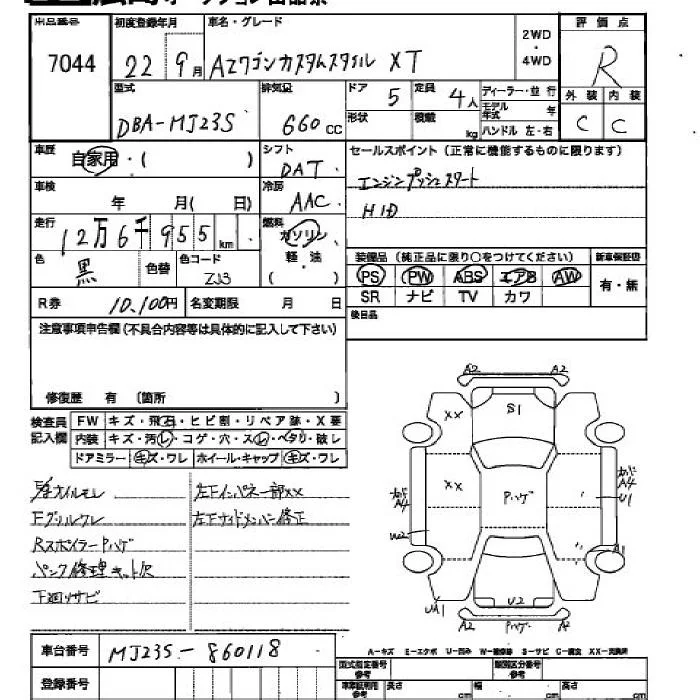 出品番号 初度登録年月 車名・グレード 評価点
7044 22 9月 AZワゴンカスタムスタイル XT 2WD・4WD R
型式 排気量 ドア 5 定員 4人 ディーラー・並行 外装 内装
DBA-MJ23S 660cc 形状 積載 kg モデル年式 年 C C
ハンドル 左・右
車歴 自家用・( ) シフト DAT セールスポイント(正常に機能するものに限ります)
車検 年 月( 日) 冷房 AAC エンジンプッシュスタート
HID
走行 12万6千955km 燃料 ガソリン・軽油 ( )
色 黒 色替 色コード ZJ3 装備品(純正品に限り○をつけてください) 新車保証書
PS PW ABS エアB AW 有・無
SR ナビ TV カワ
R券 10,100円 名変期限 月 日 後日品
注意事項申告欄(不具合内容等は具体的に記入して下さい)
修復歴 有 〔箇所 〕
検査員記入欄 FW キズ・飛石・ヒビ割・リペア跡・X要
内装 キズ・汚レ・コゲ・穴・スレ・ヘタリ・破レ
ドアミラー キズ・ワレ ホイール・キャップ キズ・ワレ
A2 A2
XX S1
XX Pハゲ
A4 U1 A4
W2
A1
UA1 U2
A2 Pハゲ A2
E/gオイルモレ 左フインパネ一部XX
Fグリルワレ 左フサイドメンバー修正
RスポイラーPハゲ
パンク修理キット欠
下廻りサビ
車台番号 MJ23S-860118
A-キズ E-エクボ U-凹み S-サビ C-腐食 XX-交換済
登録番号 型式指定番号 参考 類別区分番号 参考
長さ cm 幅 cm 高さ cm